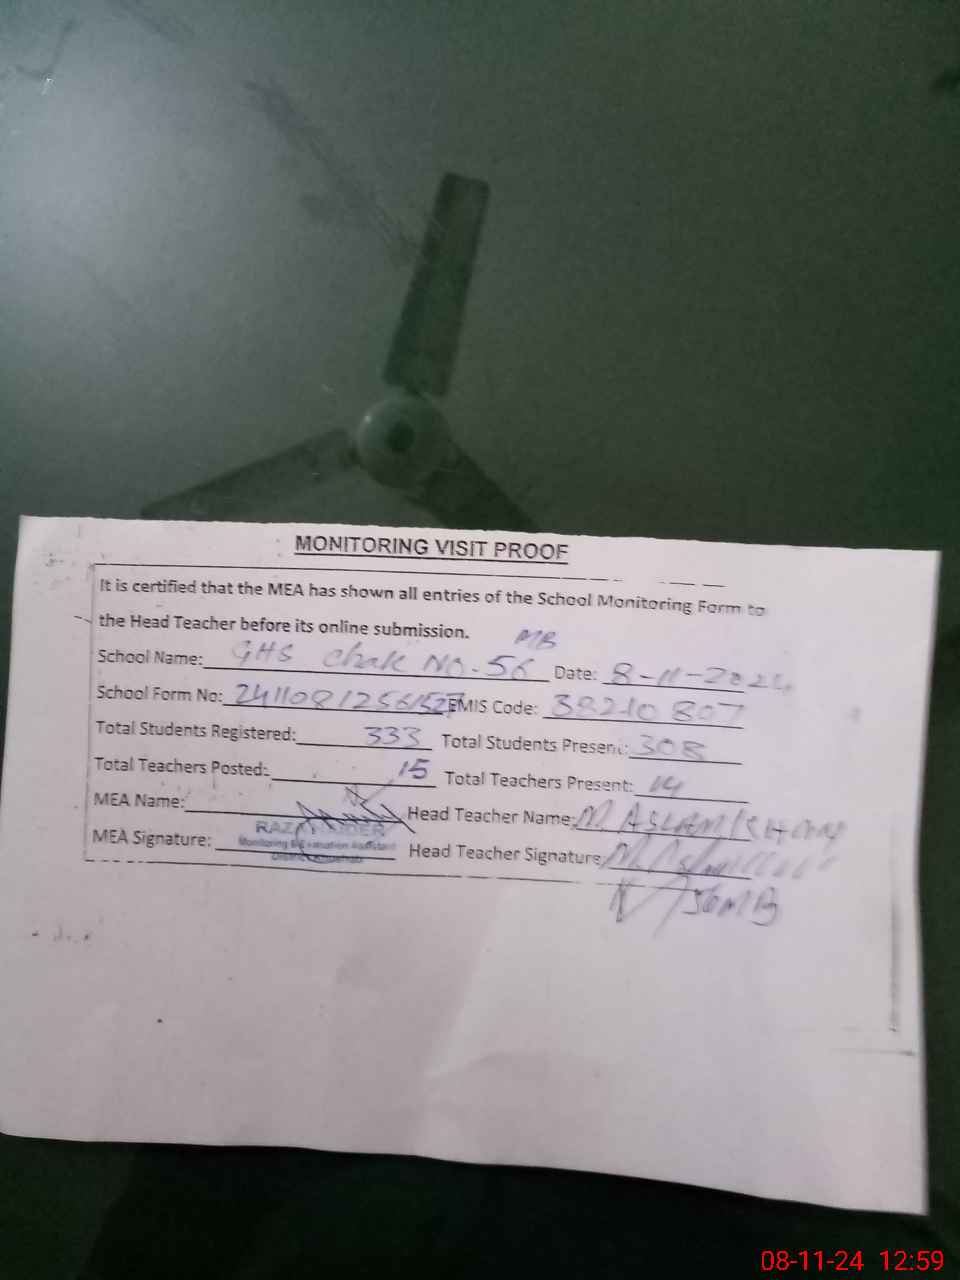 MONITORING VISIT PROOF
It is certified that the MEA has shown all entries of the School Monitoring Form to
the Head Teacher before its online submission.
School Name: GHS Chak No-56 MB Date: 8-11-2024
School Form No: EMIS Code: 38210807
Total Students Registered: 333 Total Students Present: 308
Total Teachers Posted: 15 Total Teachers Present: 14
MEA Name: Head Teacher Name: M. ASLAM
RAZA HAIDER
MEA Signature: Monitoring & Evaluation Assistant Head Teacher Signature:
District Khushab
56 MB
08-11-24 12:59